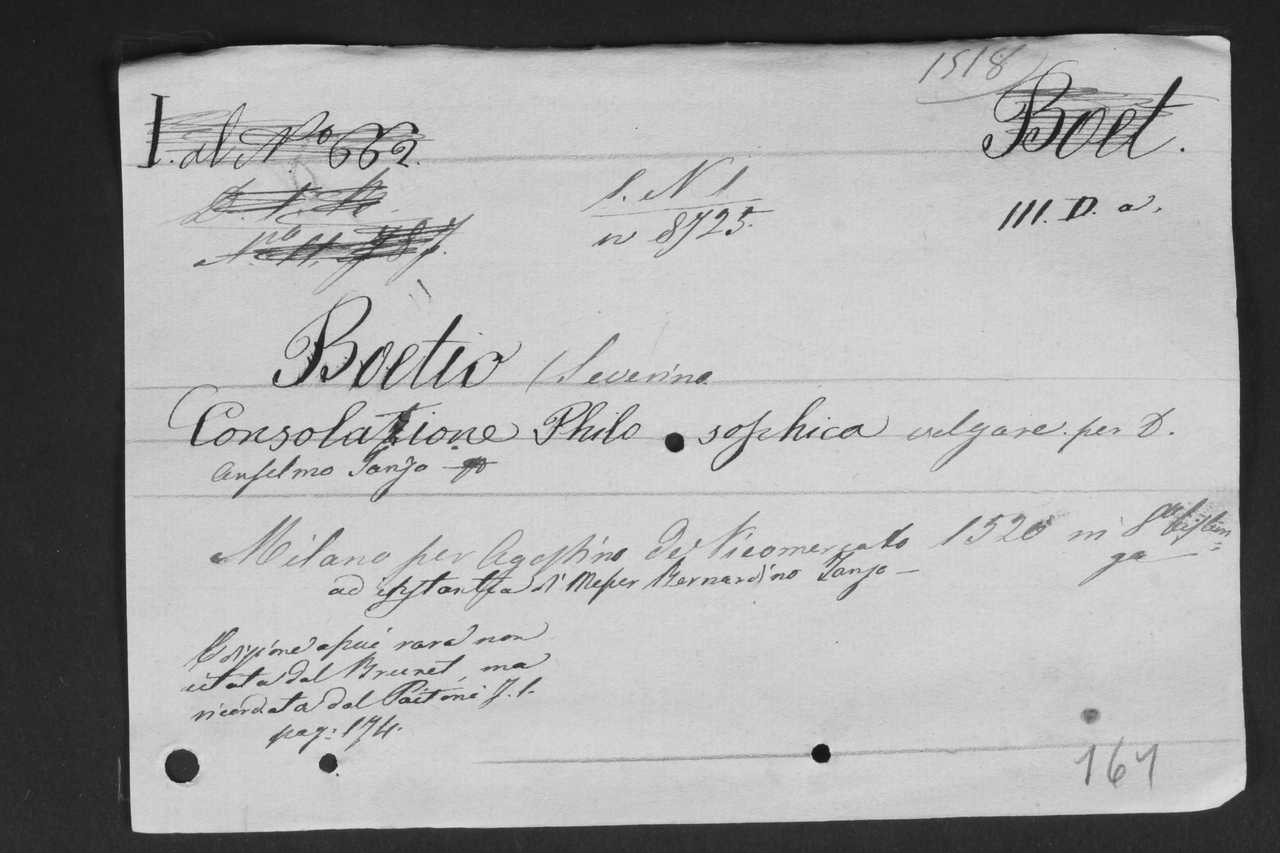 1518
I. al No 662.
Boet.
S. N 1
n 8725.
III. D. a.
Boetio Severino
Consolatione Philosophica volgare per D.
Anselmo Tanzo
Milano per Agostino de Vicomercato 1520 in 8°
ad instantia di Messer Bernardino Tanzo —
Edizione assai rara non
citata dal Brunet, ma
ricordata dal Paitoni T. 1.
pag: 174.
161